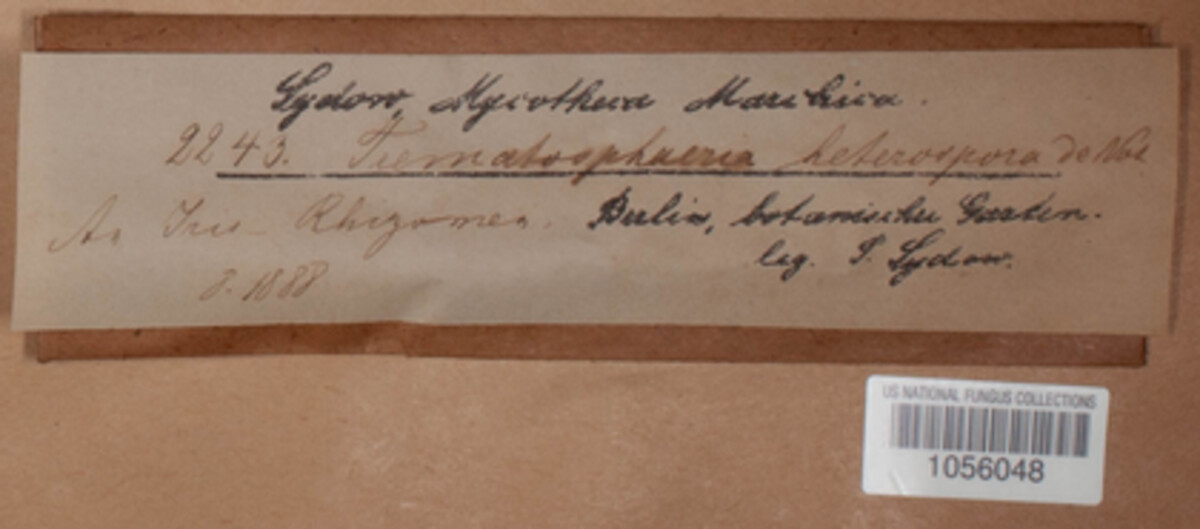 Sydow, Mycotheca Marchica.
2243. Trematosphaeria heterospora de Not
An Iris-Rhizomen. Berlin, botanischer Garten.
leg. P. Sydow.
8. 1888
US NATIONAL FUNGUS COLLECTIONS
1056048